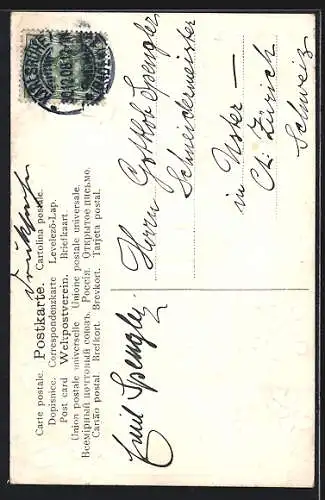 Drucksache
Carte postale. Postkarte. Cartolina postale.
Dopisnice. Correspondenzkarte Levelező-Lap.
Post card Weltpostverein. Briefkaart.
Union postale universelle Unione postale universale.
Всемірный почтовый союзъ. Россія. Открытое письмо.
Cartão postal. Brefkort. Brevkort. Tarjeta postal.
Herrn Gotthold Spengler
Schneidermeister
in Uster —
Ct. Zürich
Schweiz
Emil Spengler